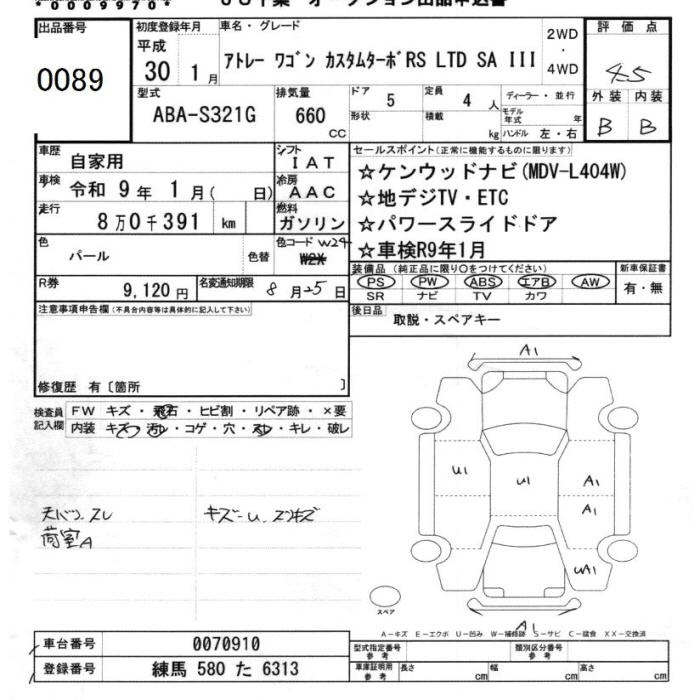 *0009970*
出品番号
0089
初度登録年月
平成
30 1月
車名・グレード
アトレー ワゴン カスタムターボRS LTD SA III
2WD
・
4WD
評価点
4.5
外装 内装
B B
型式
ABA-S321G
排気量
660
CC
ドア
5
定員
4 人
ディーラー・並行
形状
積載
kg
モデル年式 年
ハンドル 左・右
車歴
自家用
シフト
IAT
車検
令和 9年 1月( 日)
冷房
AAC
走行
8万0千391 km
燃料
ガソリン
色
パール
色替
色コード W24
W2X
R券
9,120円
名変通知期限
8月25日
セールスポイント(正常に機能するものに限ります)
☆ケンウッドナビ(MDV-L404W)
☆地デジTV・ETC
☆パワースライドドア
☆車検R9年1月
装備品(純正品に限り○をつけてください)
PS PW ABS エアB AW
SR ナビ TV カワ
新車保証書
有・無
後日品
取説・スペアキー
注意事項申告欄(不具合内容等は具体的に記入して下さい)
修復歴 有〔箇所 〕
検査員
記入欄
FW キズ・飛石・ヒビ割・リペア跡・×要
内装 キズ・汚レ・コゲ・穴・スレ・キレ・破レ
天バリ スレ
荷室A
キズ-U、スリキズ
A1
U1
U1
A1
A1
UA1
A1
スペア
A-キズ E-エクボ U-凹み W-補修跡 S-サビ C-腐食 XX-交換済
車台番号 0070910
登録番号 練馬 580 た 6313
型式指定番号
参考
類別区分番号
参考
車庫証明用
参考
長さ cm 幅 cm 高さ cm